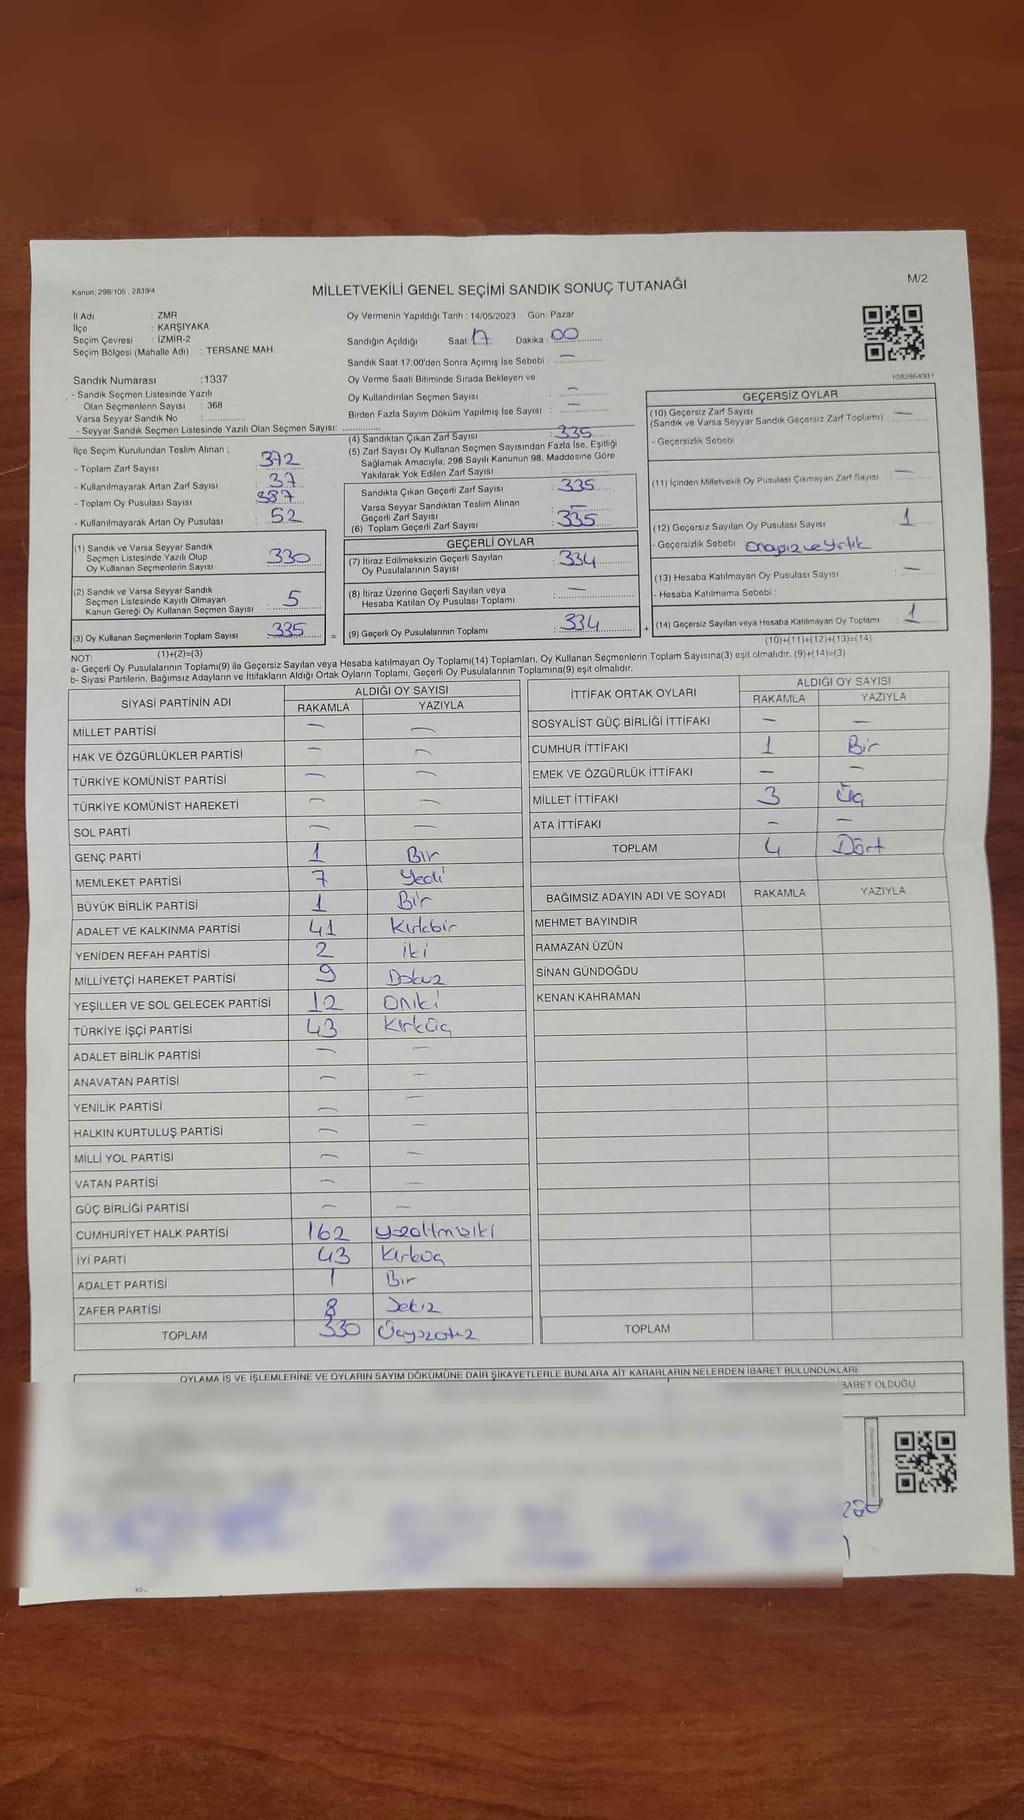 Kanun: 298/105 , 2839/4
MİLLETVEKİLİ GENEL SEÇİMİ SANDIK SONUÇ TUTANAĞI
M/2
İl Adı : ZMR
İlçe : KARŞIYAKA
Seçim Çevresi : İZMİR-2
Seçim Bölgesi (Mahalle Adı) : TERSANE MAH.
Oy Vermenin Yapıldığı Tarih : 14/05/2023 Gün: Pazar
Sandığın Açıldığı Saat: 17 Dakika: 00
Sandık Saat 17:00'den Sonra Açımış İse Sebebi : —
Oy Verme Saati Bitiminde Sırada Bekleyen ve
Oy Kullandırılan Seçmen Sayısı : —
Birden Fazla Sayım Döküm Yapılmış İse Sayısı : —
1083864931
Sandık Numarası :1337
- Sandık Seçmen Listesinde Yazılı
Olan Seçmenlerin Sayısı : 368
Varsa Seyyar Sandık No :
- Seyyar Sandık Seçmen Listesinde Yazılı Olan Seçmen Sayısı:
İlçe Seçim Kurulundan Teslim Alınan ;
- Toplam Zarf Sayısı : 372
- Kullanılmayarak Artan Zarf Sayısı : 37
- Toplam Oy Pusulası Sayısı : 387
- Kullanılmayarak Artan Oy Pusulası : 52
(1) Sandık ve Varsa Seyyar Sandık
Seçmen Listesinde Yazılı Olup
Oy Kullanan Seçmenlerin Sayısı : 330
(2) Sandık ve Varsa Seyyar Sandık
Seçmen Listesinde Kayıtlı Olmayan
Kanun Gereği Oy Kullanan Seçmen Sayısı : 5
(3) Oy Kullanan Seçmenlerin Toplam Sayısı : 335
(1)+(2)=(3)
(4) Sandıktan Çıkan Zarf Sayısı : 335
(5) Zarf Sayısı Oy Kullanan Seçmen Sayısından Fazla İse, Eşitliği
Sağlamak Amacıyla; 298 Sayılı Kanunun 98. Maddesine Göre
Yakılarak Yok Edilen Zarf Sayısı :
Sandıkta Çıkan Geçerli Zarf Sayısı : 335
Varsa Seyyar Sandıktan Teslim Alınan
Geçerli Zarf Sayısı : —
(6) Toplam Geçerli Zarf Sayısı : 335
GEÇERLİ OYLAR
(7) İtiraz Edilmeksizin Geçerli Sayılan
Oy Pusulalarının Sayısı : 334
(8) İtiraz Üzerine Geçerli Sayılan veya
Hesaba Katılan Oy Pusulası Toplamı : —
= (9) Geçerli Oy Pusulalarının Toplamı : 334
GEÇERSİZ OYLAR
(10) Geçersiz Zarf Sayısı : —
(Sandık ve Varsa Seyyar Sandık Geçersiz Zarf Toplamı)
- Geçersizlik Sebebi :
(11) İçinden Milletvekili Oy Pusulası Çıkmayan Zarf Sayısı : —
(12) Geçersiz Sayılan Oy Pusulası Sayısı : 1
- Geçersizlik Sebebi :
(13) Hesaba Katılmayan Oy Pusulası Sayısı : —
- Hesaba Katılmama Sebebi :
+ (14) Geçersiz Sayılan veya Hesaba Katılmayan Oy Toplamı : 1
(10)+(11)+(12)+(13)=(14)
NOT:
a- Geçerli Oy Pusulalarının Toplamı(9) ile Geçersiz Sayılan veya Hesaba katılmayan Oy Toplamı(14) Toplamları, Oy Kullanan Seçmenlerin Toplam Sayısına(3) eşit olmalıdır. (9)+(14)=(3)
b- Siyasi Partilerin, Bağımsız Adayların ve İttifakların Aldığı Ortak Oyların Toplamı, Geçerli Oy Pusulalarının Toplamına(9) eşit olmalıdır.
SİYASİ PARTİNİN ADI
ALDIĞI OY SAYISI
RAKAMLA YAZIYLA
MİLLET PARTİSİ — —
HAK VE ÖZGÜRLÜKLER PARTİSİ — —
TÜRKİYE KOMÜNİST PARTİSİ — —
TÜRKİYE KOMÜNİST HAREKETİ — —
SOL PARTİ — —
GENÇ PARTİ 1 Bir
MEMLEKET PARTİSİ 7 Yedi
BÜYÜK BİRLİK PARTİSİ 1 Bir
ADALET VE KALKINMA PARTİSİ 41 Kırkbir
YENİDEN REFAH PARTİSİ 2 iki
MİLLİYETÇİ HAREKET PARTİSİ 9 Dokuz
YEŞİLLER VE SOL GELECEK PARTİSİ 12 Oniki
TÜRKİYE İŞÇİ PARTİSİ 43 Kırküç
ADALET BİRLİK PARTİSİ — —
ANAVATAN PARTİSİ — —
YENİLİK PARTİSİ — —
HALKIN KURTULUŞ PARTİSİ — —
MİLLİ YOL PARTİSİ — —
VATAN PARTİSİ — —
GÜÇ BİRLİĞİ PARTİSİ — —
CUMHURİYET HALK PARTİSİ 162
İYİ PARTİ 43 Kırküç
ADALET PARTİSİ 1 Bir
ZAFER PARTİSİ 8 Sekiz
TOPLAM 330 Üçyüzotuz
İTTİFAK ORTAK OYLARI
ALDIĞI OY SAYISI
RAKAMLA YAZIYLA
SOSYALİST GÜÇ BİRLİĞİ İTTİFAKI — —
CUMHUR İTTİFAKI 1 Bir
EMEK VE ÖZGÜRLÜK İTTİFAKI — —
MİLLET İTTİFAKI 3 Üç
ATA İTTİFAKI — —
TOPLAM 4 Dört
BAĞIMSIZ ADAYIN ADI VE SOYADI RAKAMLA YAZIYLA
MEHMET BAYINDIR
RAMAZAN ÜZÜN
SİNAN GÜNDOĞDU
KENAN KAHRAMAN
TOPLAM
OYLAMA İŞ VE İŞLEMLERİNE VE OYLARIN SAYIM DÖKÜMÜNE DAİR ŞİKAYETLERLE BUNLARA AİT KARARLARIN NELERDEN İBARET BULUNDUKLARI
İBARET OLDUĞU